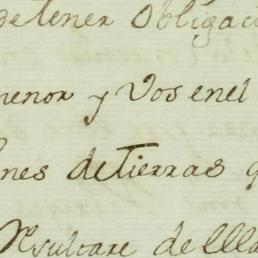 detener obligaci
menor y Vos enel
nes de tierras q
Resultare de lla